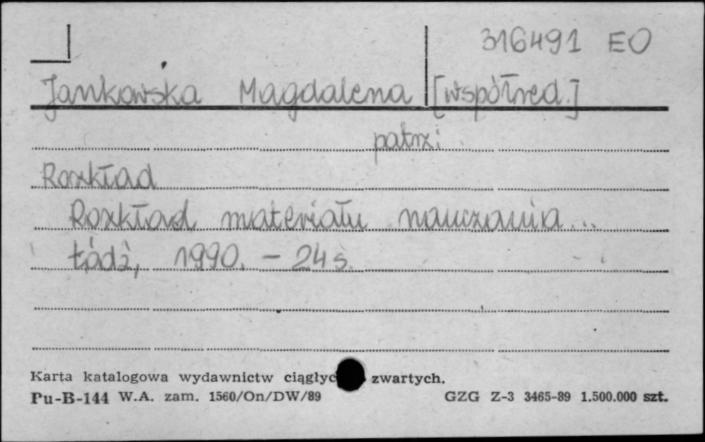 316491 EO
Jankowska Magdalena [współred.]
patrz:
Rozkład
Rozkład materiału nauczania...
Łódź, 1990. - 24 s.
Karta katalogowa wydawnictw ciągłyc zwartych.
Pu-B-144 W.A. zam. 1560/On/DW/89 GZG Z-3 3465-89 1.500.000 szt.